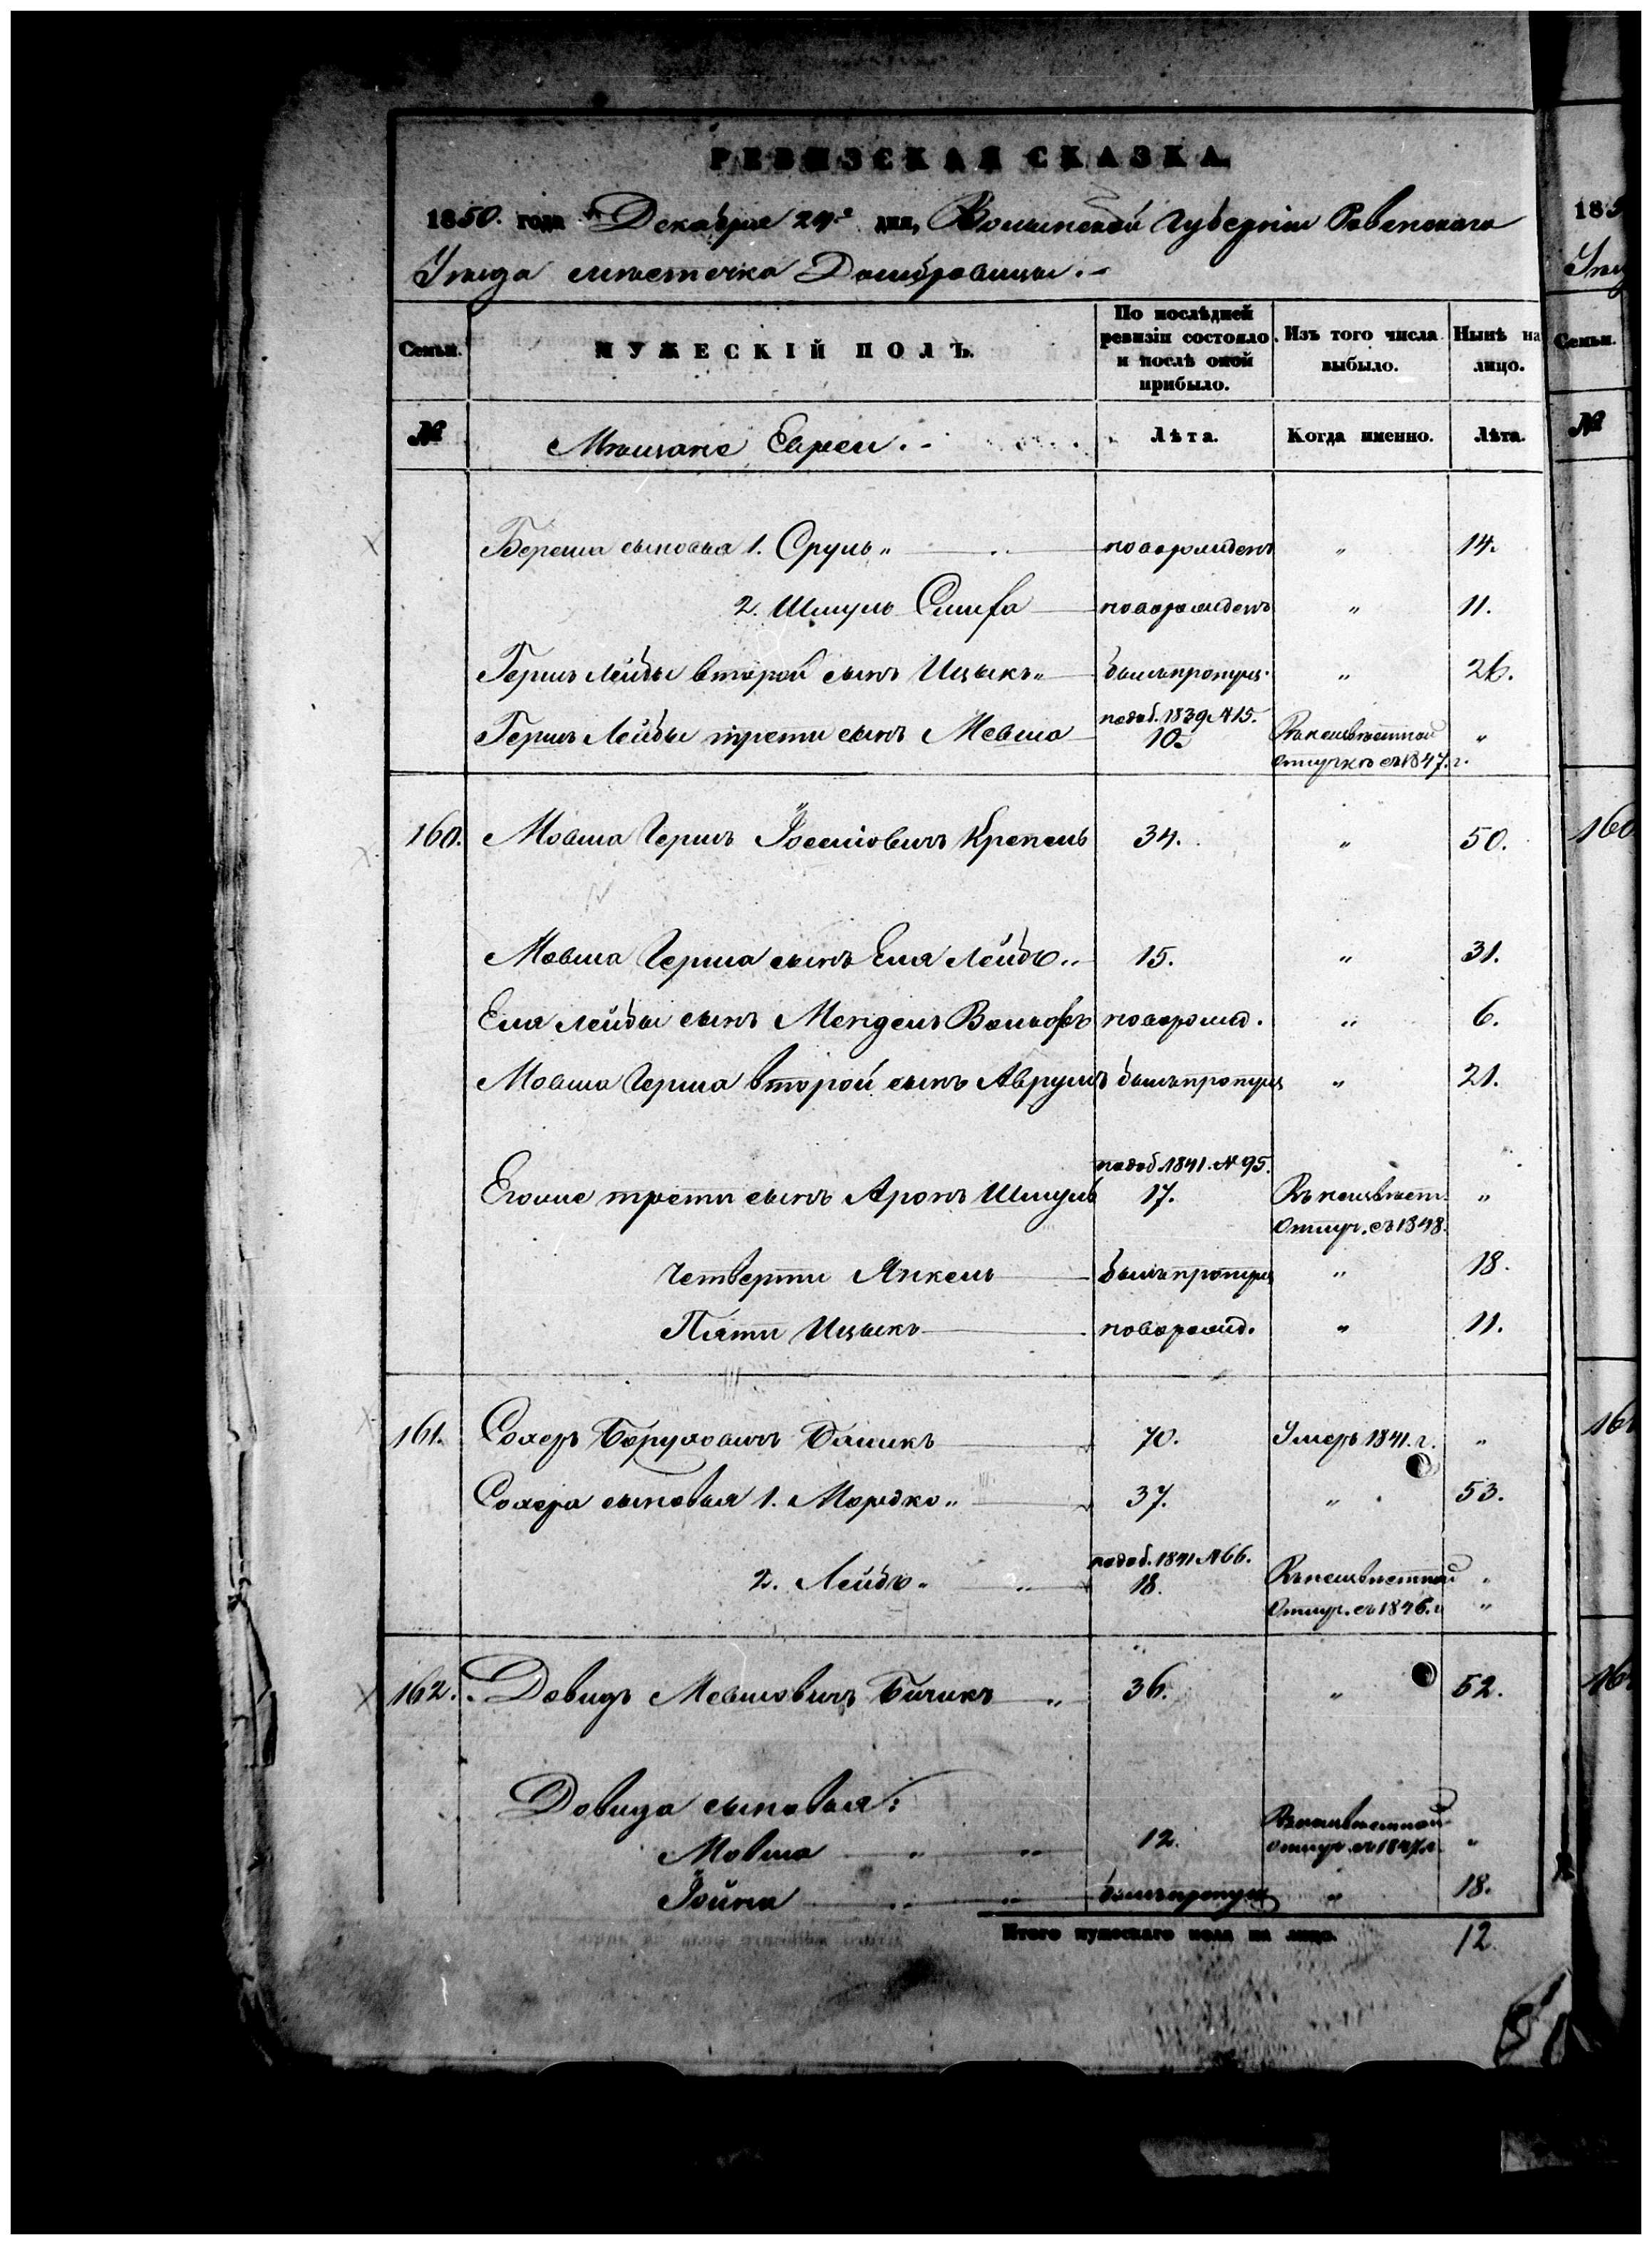 РЕВИЗСКАЯ СКАЗКА.
1850. года Декабря 24го дня, Волынской Губерніи Ровенскаго
Уезда местечка Домбровицы.
Семьи. МУЖЕСКІЙ ПОЛЪ. По послѣдней ревизіи состояло и послѣ оной прибыло. Изъ того числа выбыло. Нынѣ на лицо.
№ Мѣщане Евреи. Лѣта. Когда именно. Лѣта.
Береша сыновья 1. Сруль " новорожденъ " 14.
2. Шмуль новорожденъ " 11.
Гершъ Лейбы второй сынъ Ицыкъ " былъ пропущ. " 26.
подоб. 1839 №15.
Гершъ Лейбы трети сынъ Мовша 10. Въ неизвѣстной "
отлучкѣ съ 1847. г.
160. Мовша Гершъ Іосиіовичъ Крепель 34. " 50.
Мовша Герша сынъ Еля Лейбъ " 15. " 31.
Еля Лейбы сынъ Мендель Вольфъ новорожд. " 6.
Мовша Герша второй сынъ Аврумъ былъ пропущ " 21.
подоб 1841. №95.
Егоже трети сынъ Аронъ Шмуль 17. Въ неизвѣст. "
отлуч. съ 1848.
четверти Янкель былъ пропущ " 18.
Пяти Ицыкъ новорожд. " 11.
161. Сохеръ Боруховичъ Бичикъ 70. Умеръ 1841. г. "
Сохера сыновья 1. Мордко " 37. " 53.
подоб. 1841 №66.
2. Лейбъ " 18. Въ неизвѣстной "
отлуч. съ 1846. г "
162. Довидъ Мовшовичъ Бичикъ " 36. " 52.
Довида сыновья:
Въ неизвѣстной
Мовша " 12. отлуч. съ 1847. г. "
Іойна " былъ пропущ " 18.
Итого мужескаго пола на лицо. 12